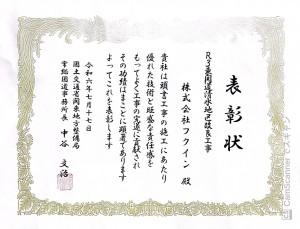 表彰状
R3東関道清水地区改良工事
株式会社フクイン 殿
貴社は頭書工事の施工にあたり
優れた技術と旺盛な責任感を
もってよく工事の完遂に貢献され
その功績はまことに顕著であります
よってこれを表彰します
令和六年七月十七日
国土交通省関東地方整備局
常総国道事務所長 中谷 文浩
CamScanner でスキャン